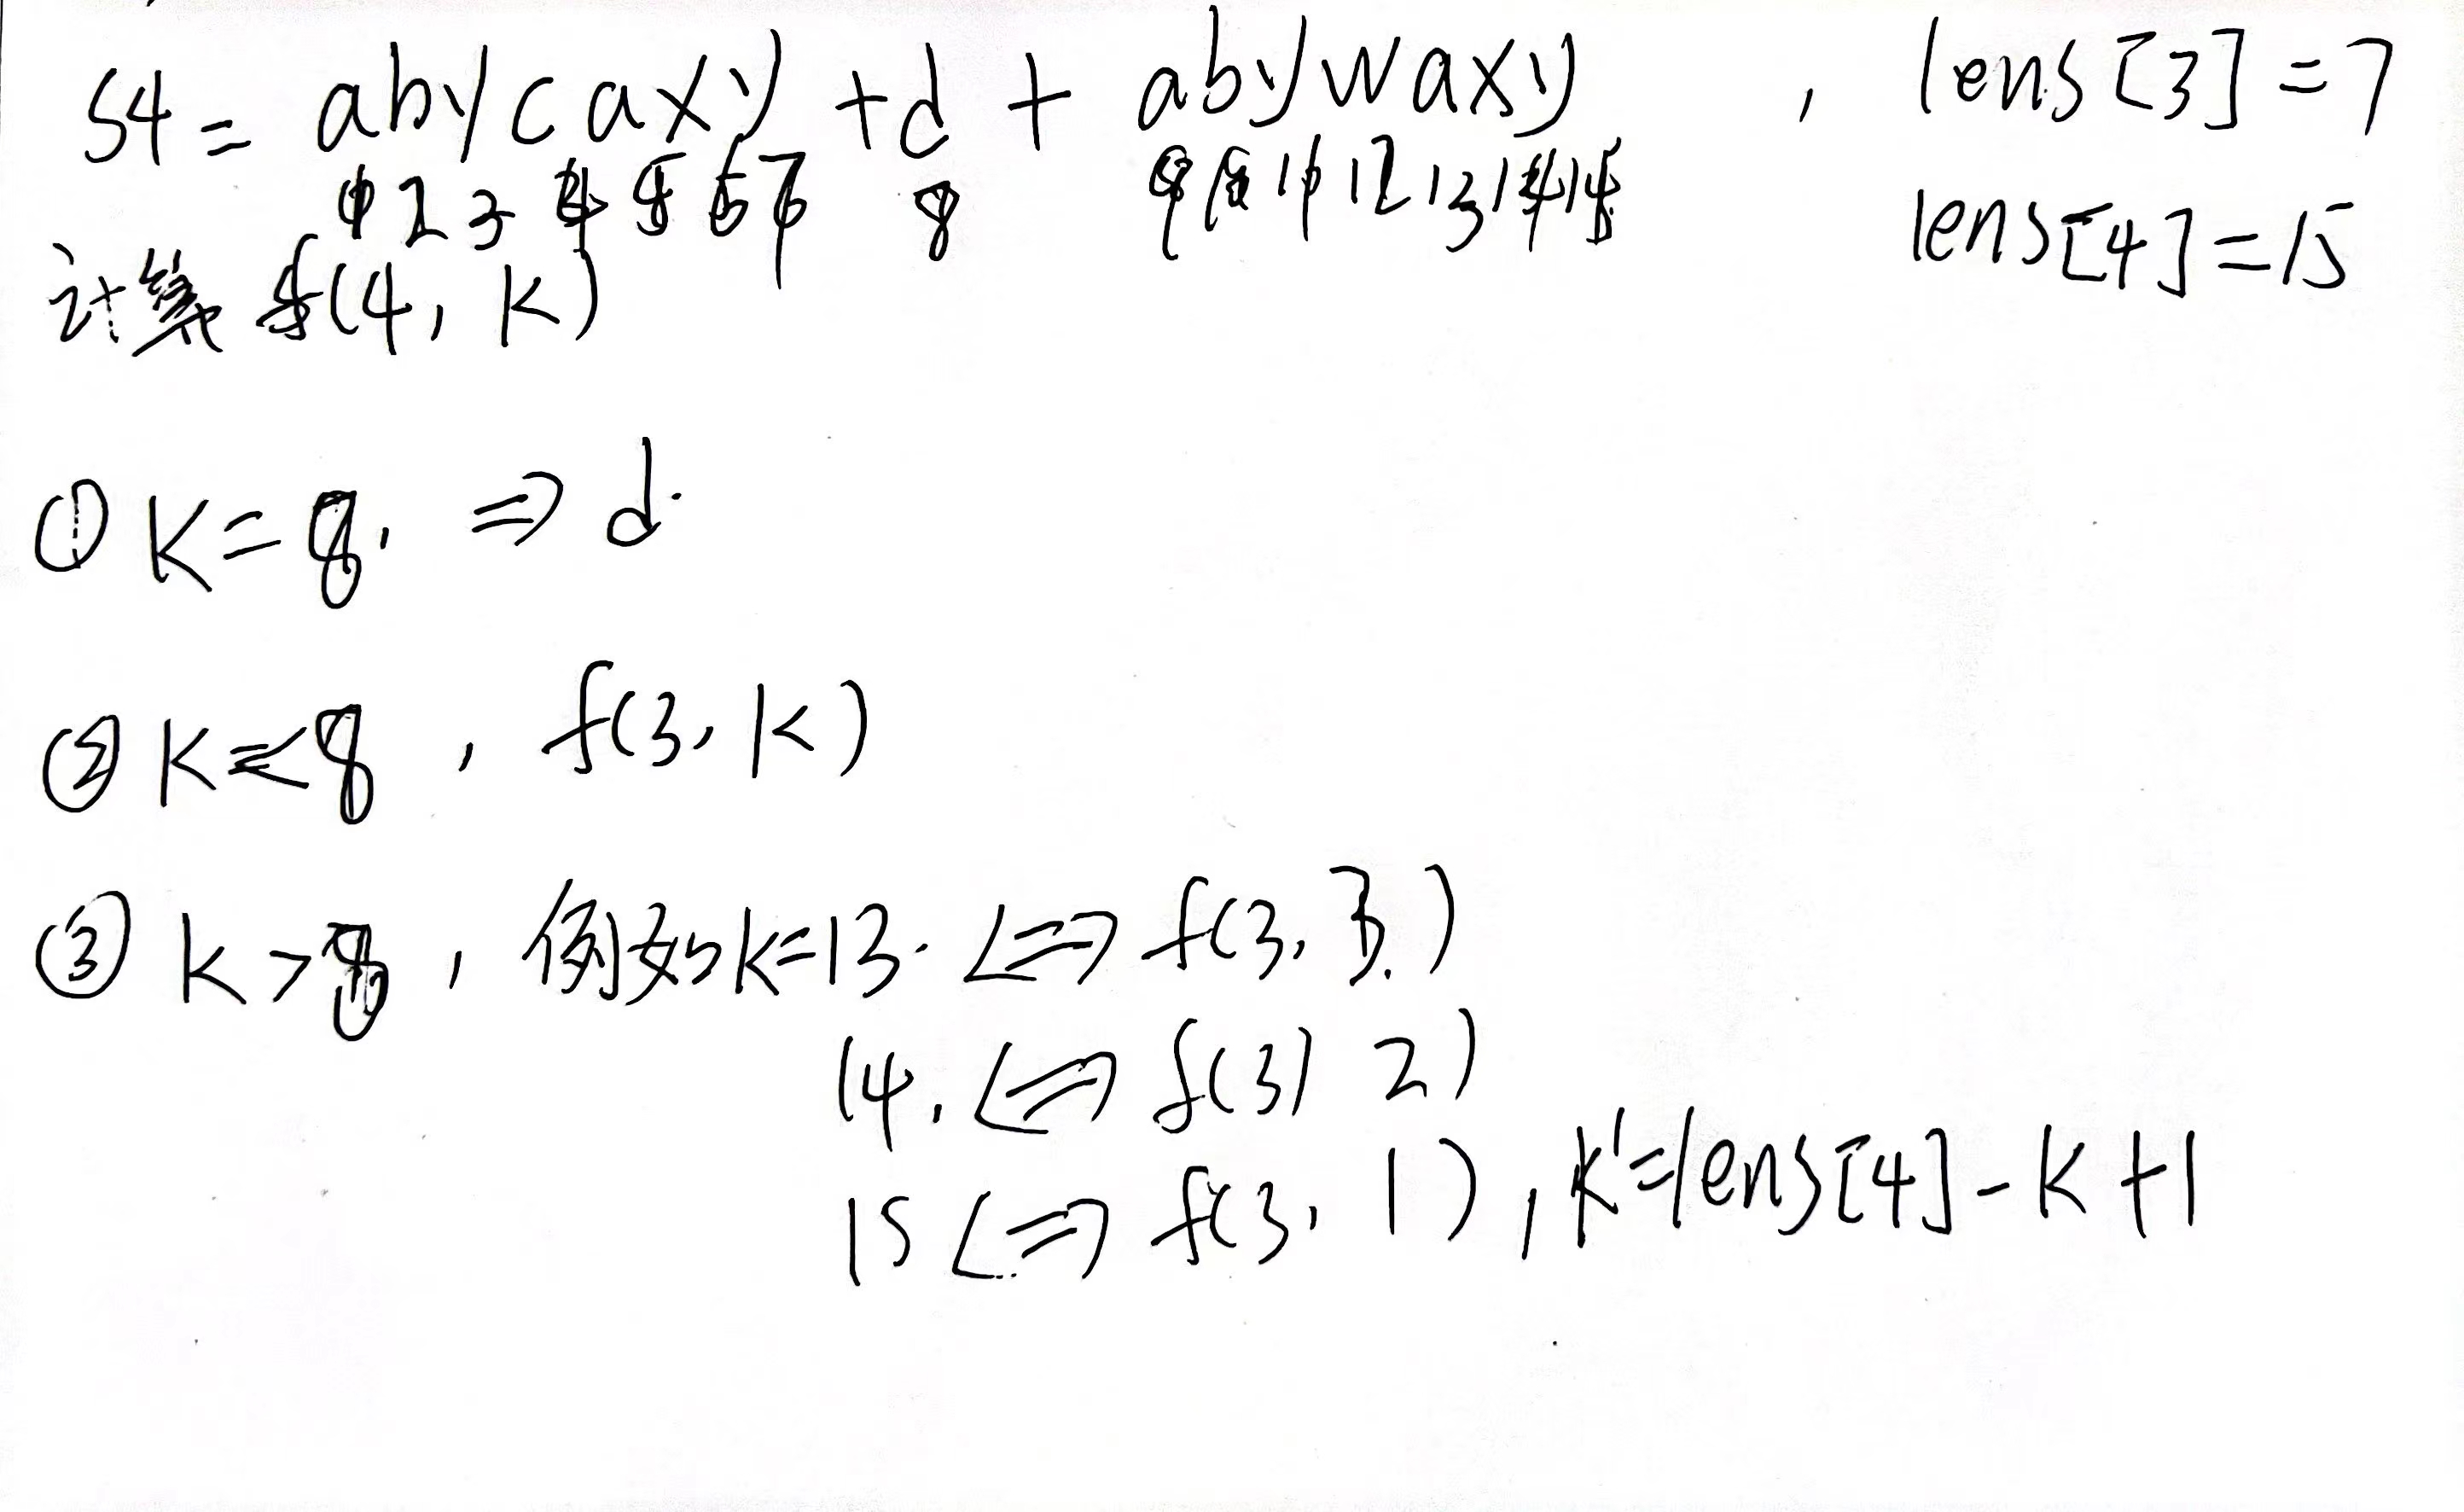 S4 = abycaxy + d + abywaxy , lens[3] = 7
1 2 3 4 5 6 7 8 9 10 11 12 13 14 15 lens[4] = 15
计算 f(4, K)
① K = 8. ⇒ d.
② K < 8 , f(3, K)
③ K > 8 , 例如 k=13. <=> f(3, 3.)
14. <=> f(3, 2)
15 <=> f(3, 1) , K' = lens[4] - K + 1